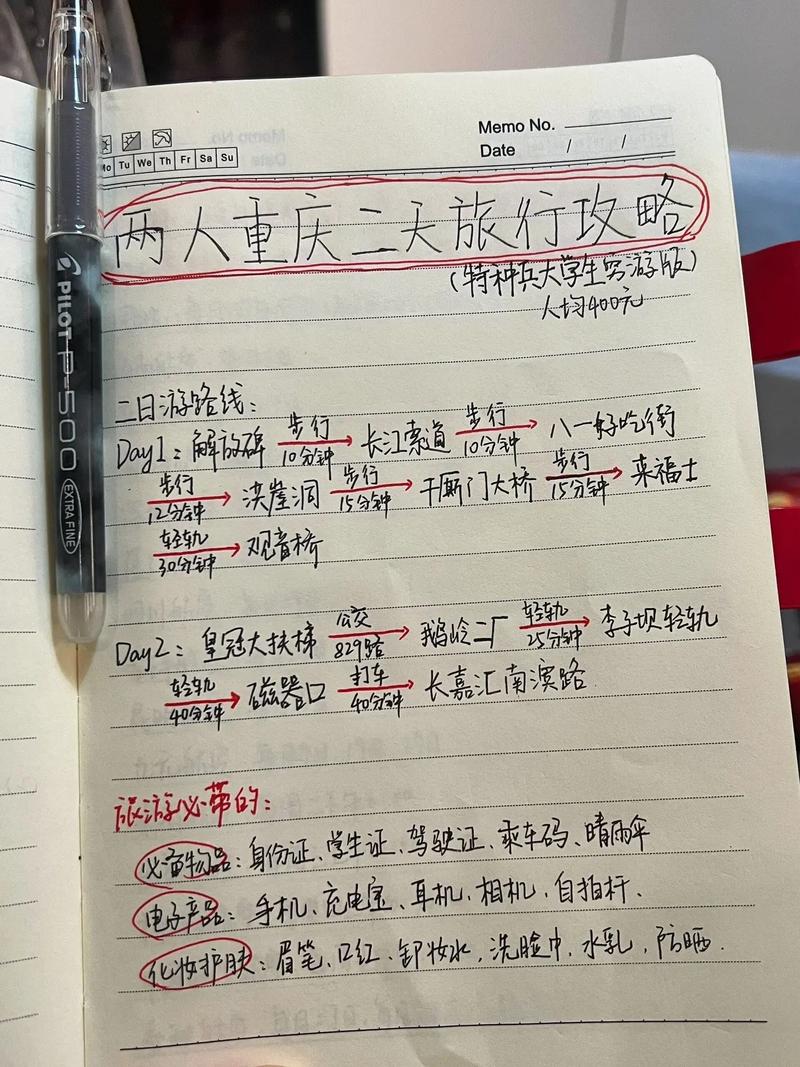 Memo No.
Date / /
Mo Tu We Th Fr Sa Su
两人重庆二天旅行攻略
(特种兵大学生穷游版)
人均400元
二日游路线:
Day1: 解放碑 步行 10分钟 长江索道 步行 10分钟 八一好吃街
步行 12分钟 洪崖洞 步行 15分钟 千厮门大桥 步行 15分钟 来福士
轻轨 30分钟 观音桥
Day2: 皇冠大扶梯 公交 829路 鹅岭二厂 轻轨 25分钟 李子坝轻轨
轻轨 40分钟 磁器口 打车 40分钟 长嘉汇南滨路
旅游必带的:
必备物品: 身份证、学生证、驾驶证、乘车码、晴雨伞
电子产品: 手机、充电宝、耳机、相机、自拍杆.
化妆护肤: 眉笔、口红、卸妆水、洗脸巾、水乳、防晒.
PILOT P-500 EXTRA FINE